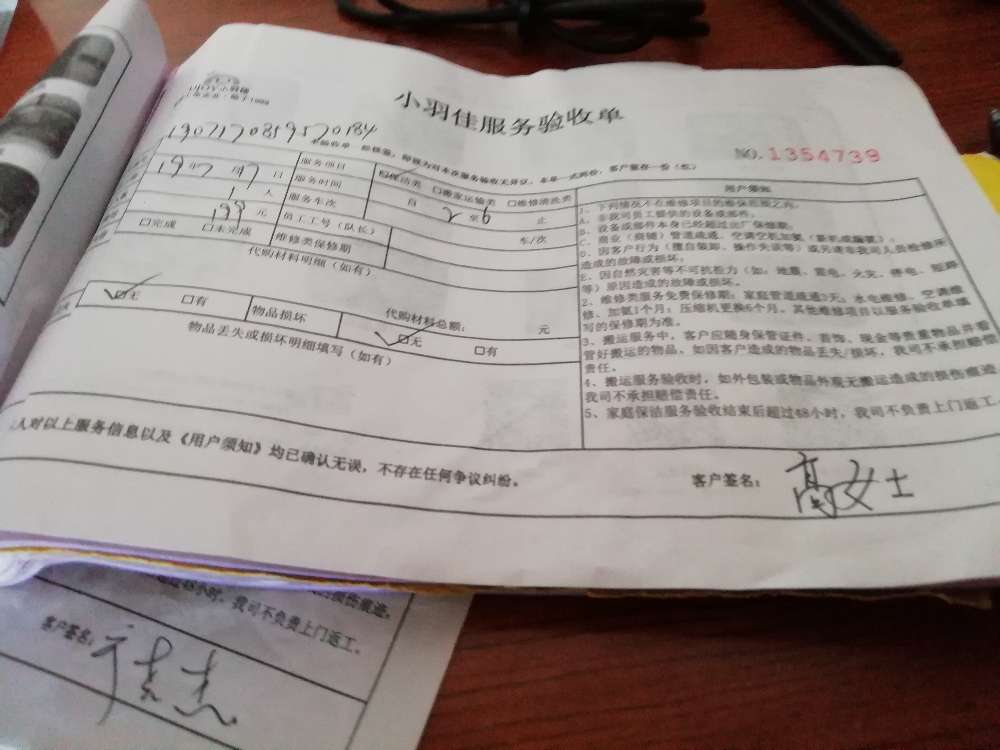 小羽佳服务验收单
NO.1354739
1907170859570184
服务项目
保洁类 □搬家运输类 □维修清洗类
19年7月17日
服务时间
自 2 至 6 止
1人
服务车次
车/次
199元
员工工号（队长）
□完成 □未完成
维修类保修期
代购材料明细（如有）
代购材料总额： 元
□无 □有
物品损坏
□无 □有
物品丢失或损坏明细填写（如有）
用户须知
1、下列情况不在维修项目的维保范围之内。
A、非我司员工提供的设备或部件。
B、设备或部件本身已经超过出厂保修期。
D、因客户行为（擅自装卸、操作失误等）或
造成的故障或损坏。
E、因自然灾害等不可抗拒力（如：地震、雷电、火灾、停电、短路
等）原因造成的故障或损坏。
2、维修类服务免费保修期：家庭管道疏通3天；水电维修、空调维
修、加氨1个月；压缩机更换6个月。其他维修项目以服务验收单填
写的保修期为准。
3、搬运服务中，客户应随身保管证件、首饰、现金等贵重物品并看
管好搬运的物品。如因客户造成的物品丢失/损坏，我司不承担赔偿
责任。
4、搬运服务验收时，如外包装或物品外观无搬运造成的损伤痕迹
我司不承担赔偿责任。
5、家庭保洁服务验收结束后超过48小时，我司不负责上门返工。
人对以上服务信息以及《用户须知》均已确认无误，不存在任何争议纠纷。
客户签名：
高女士
小时，我司不负责上门返工。
客户签名：